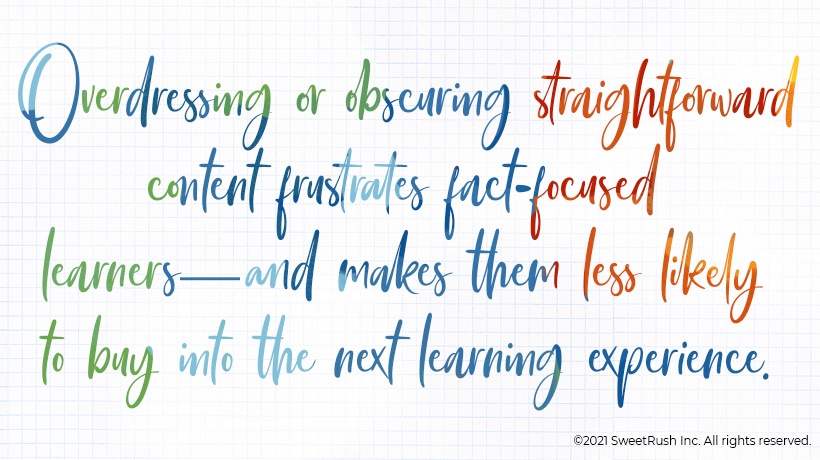 Overdressing or obscuring straightforward
content frustrates fact-focused
learners—and makes them less likely
to buy into the next learning experience.
©2021 SweetRush Inc. All rights reserved.